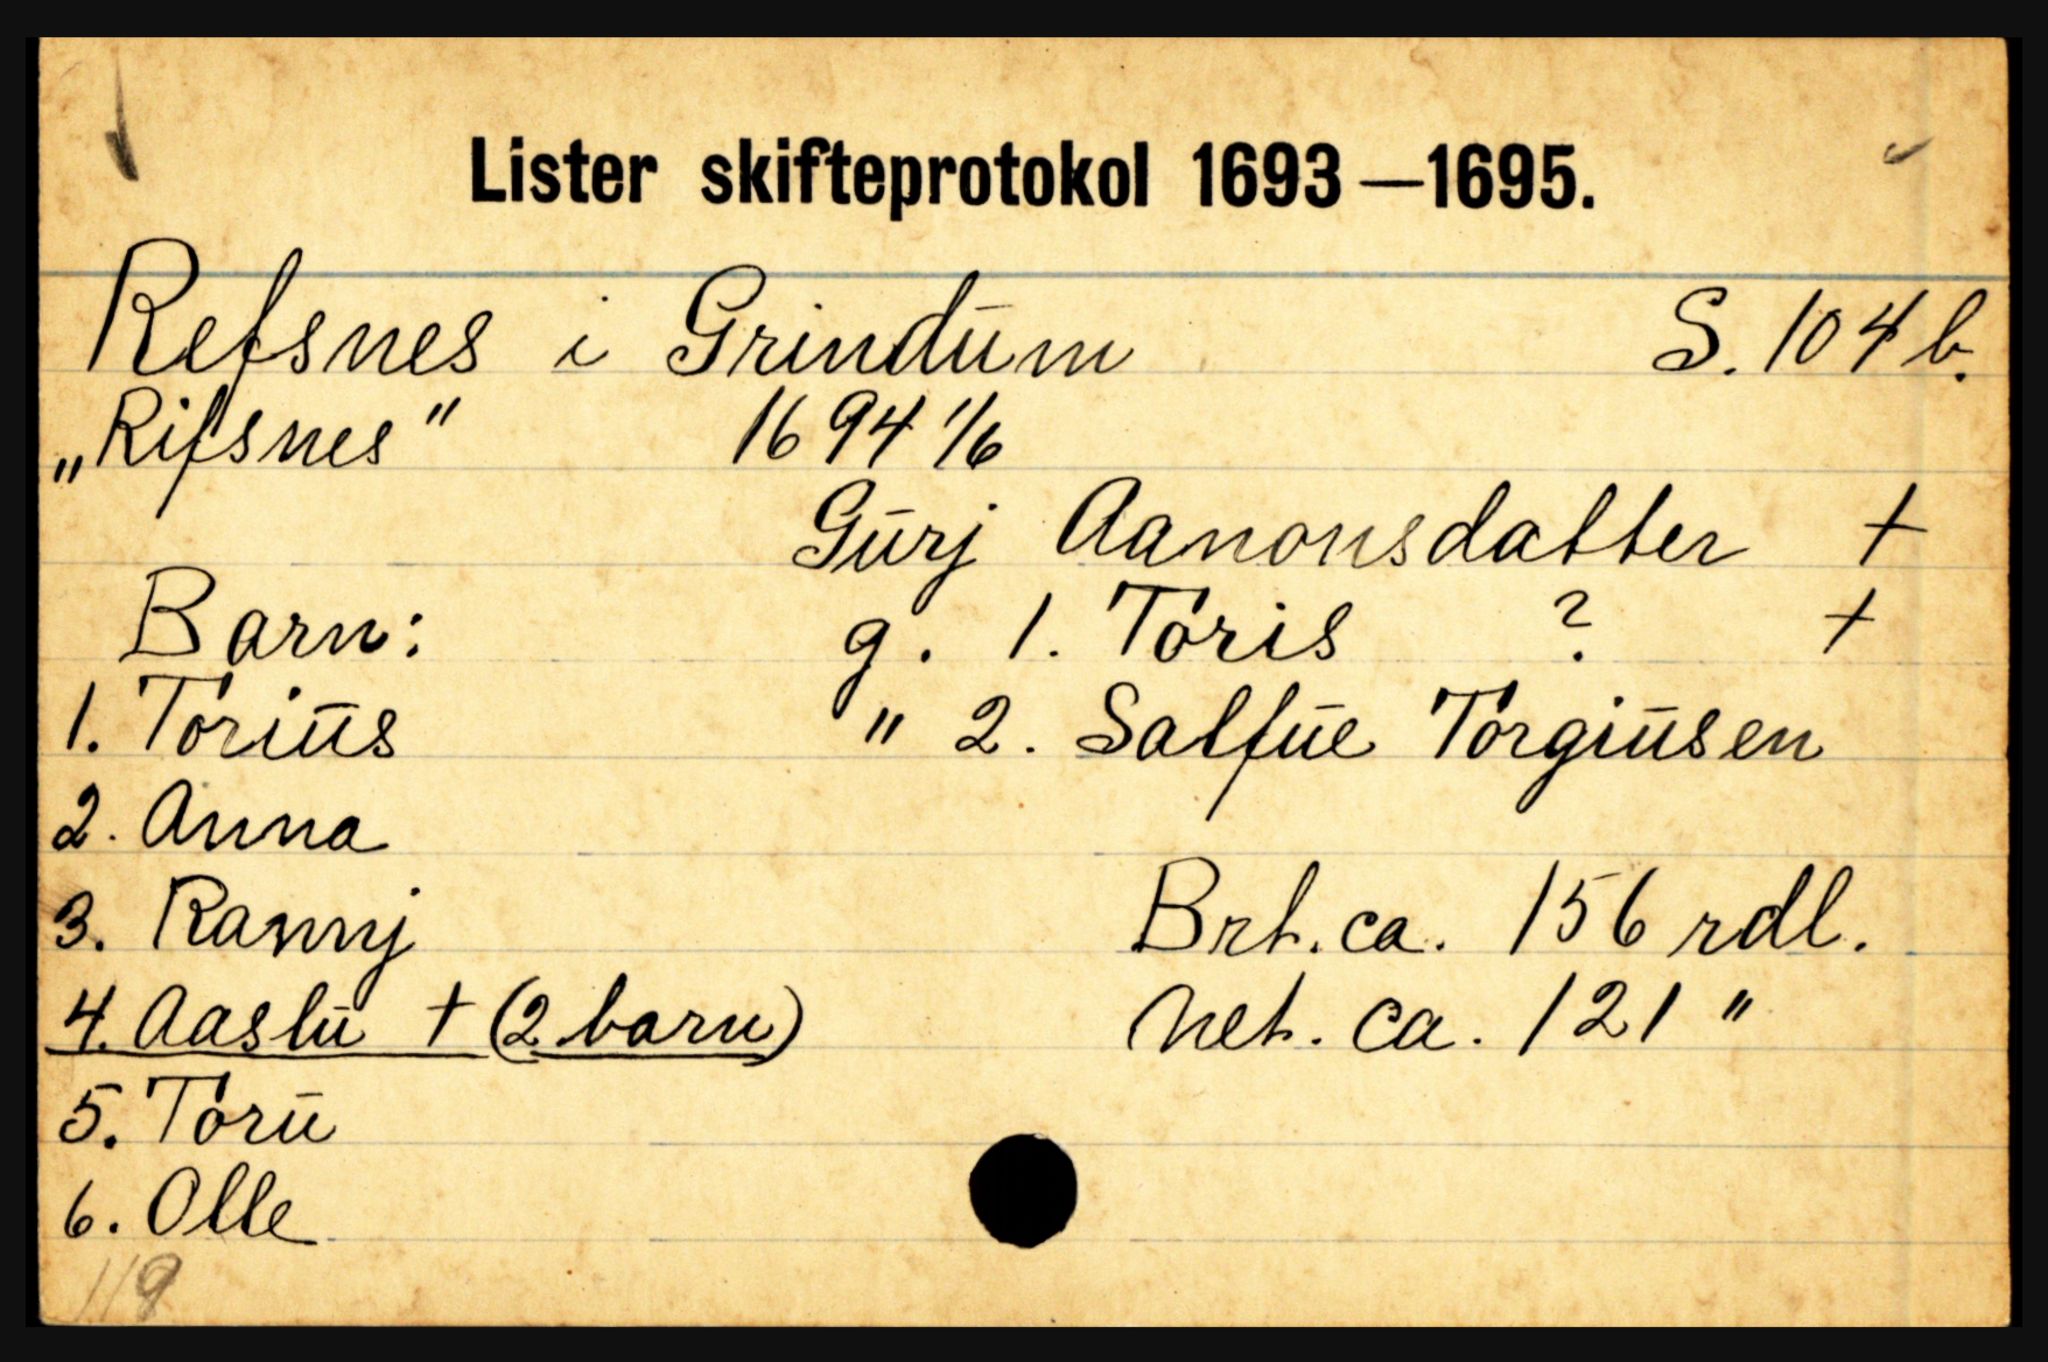 Lister skifteprotokol 1693—1695.
Refsnes i Grindum S. 104 b.
„Rifsnes" 1694 1/6
Gurj Aanonsdatter +
Barn: g. 1. Toris ? +
1. Torius " 2. Salfue Torgiusen
2. Anna
3. Rannj Brt. ca. 156 rdl.
4. Aaslu + (2 barn) Net. ca. 121 "
5. Toru
6. Olle
119